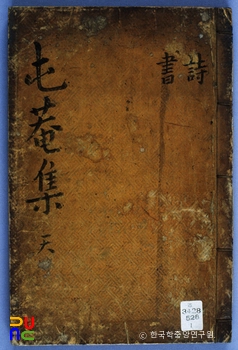 屯菴集 天
詩
書
© 한국학중앙연구원